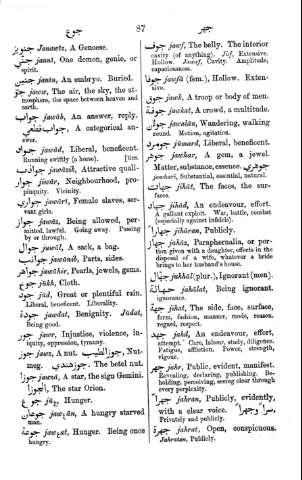 جوع
87
جهر
جنويز Janawīz, A Genoese.
جني jannī, One demon, genie, or
spirit.
janīn, An embryo. Buried.
جو jaww, The air, the sky, the at-
mosphere, the space between heaven and
earth.
جواب jawāb, An answer, reply.
جواب قطعي, A categorical an-
swer.
جواد jawād, Liberal, beneficent.
Running swiftly (a horse).
جواذب jawāzib, Attractive quali-
ties.
جوار jiwār, Neighbourhood, pro-
pinquity. Vicinity.
جواري jawārī, Female slaves, ser-
vant girls.
جواز jawāz, Being allowed, per-
mitted, lawful. Going away. Passing
by or through.
جوال jawāl, A sack, a bag.
جوانب jawānib, Parts, sides.
جواهر jawāhir, Pearls, jewels, gems.
جوخ jūkh, Cloth.
جود jūd, Great or plentiful rain.
Liberal, beneficent. Liberality.
جودة jawdat, Benignity. Jūdat,
Being good.
جور jawr, Injustice, violence, in-
iquity, oppression, tyranny.
جوز jawz, A nut. جوز الطيب, Nut-
meg. جوز هندي, The betel nut.
جوزا jawzā, A star, the sign Gemini.
الجوزا, The star Orion.
جوع jūʿ, Hunger.
جوعان jawʿān, A hungry starved
man.
جوعة jawʿat, Hunger. Being once
hungry.
جوف jawf, The belly. The interior
cavity (of anything). Jūf, Extensive.
Hollow. Jawef, Cavity. Amplitude,
capaciousness.
جوفا jawfā (fem.), Hollow. Exten-
sive.
جوق jawk, A troop or body of men.
جوقة jawkat, A crowd, a multitude.
جولان jawalān, Wandering, walking
round. Motion, agitation.
جومرد jūmard, Liberal, beneficent.
جوهر jawhar, A gem, a jewel.
Matter, substance, essence. جوهري
jawharī, Substantial, essential, natural.
جهات jihāt, The faces, the sur-
faces.
جهاد jihād, An endeavour, effort.
A gallant exploit. War, battle, combat
(especially against infidels).
جهارا jihāran, Publicly.
جهاز jahāz, Paraphernalia, or por-
tion given with a daughter, effects in the
disposal of a wife, whatever a bride
brings to her husband's house.
جهال jahhāl (plur.), Ignorant (men).
جهالة jahālat, Being ignorant.
ignorance.
جهة jihat, The side, face, surface,
form, fashion, manner, mode, reason,
regard, respect.
جهد jahd, An endeavour, effort,
attempt. Care, labour, study, diligence.
Fatigue, affliction. Power, strength,
vigour.
جهر jahr, Public, evident, manifest.
Revealing, declaring, publishing. Be-
holding, perceiving, seeing clear through
every perplexity.
جهرا jahran, Publicly, evidently,
with a clear voice. سرا وجهرا,
Privately and publicly.
جهرة jahrat, Open, conspicuous.
Jahratan, Publicly.